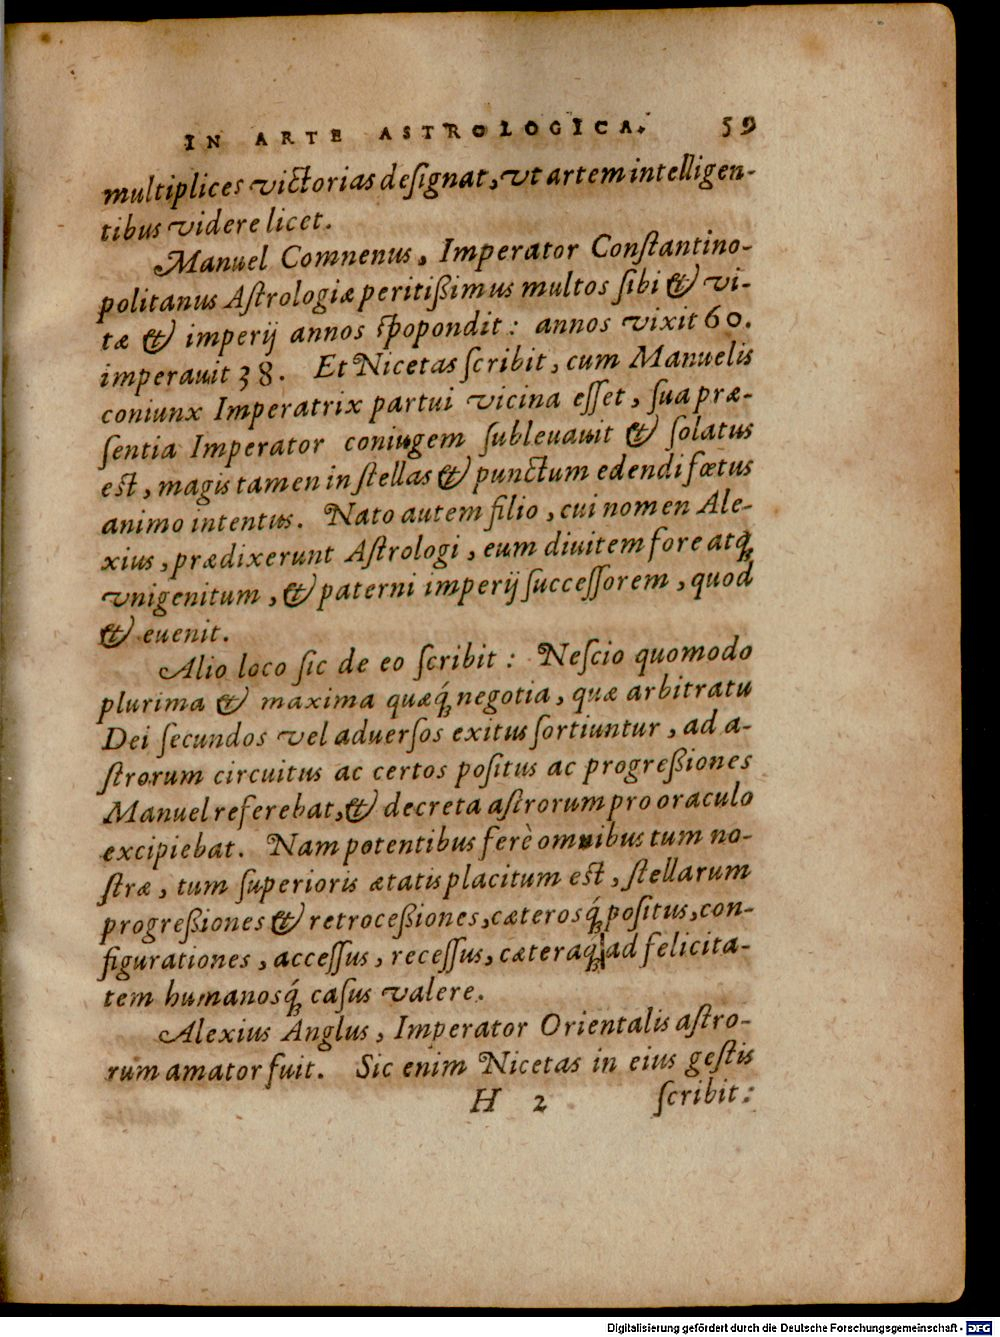 IN ARTE ASTROLOGICA. 59
multiplices victorias deſignat, vt artem intelligen-
tibus videre licet.
Manuel Comnenus, Imperator Conſtantino-
politanus Aſtrologiæ peritißimus multos ſibi & vi-
tæ & imperij annos ſpopondit: annos vixit 60.
imperauit 38. Et Nicetas ſcribit, cum Manuelis
coniunx Imperatrix partui vicina eſſet, ſua præ-
ſentia Imperator coniugem ſubleuauit & ſolatus
est, magis tamen in ſtellas & punctum edendi fœtus
animo intentus. Nato autem filio, cui nomen Ale-
xius, prædixerunt Aſtrologi, eum diuitem fore atq́ꝫ
vnigenitum, & paterni imperij ſucceſſorem, quod
& euenit.
Alio loco ſic de eo ſcribit: Neſcio quomodo
plurima & maxima quæq́ꝫ negotia, quæ arbitratu
Dei ſecundos vel aduerſos exitus ſortiuntur, ad a-
ſtrorum circuitus ac certos poſitus ac progreßiones
Manuel referebat, & decreta aſtrorum pro oraculo
excipiebat. Nam potentibus ferè omnibus tum no-
ſtræ, tum ſuperioris ætatis placitum est, ſtellarum
progreßiones & retroceßiones, cæterosq́ꝫ poſitus, con-
figurationes, acceſſus, receſſus, cæteraq́ꝫ ad felicita-
tem humanosq́ꝫ caſus valere.
Alexius Anglus, Imperator Orientalis aſtro-
rum amator fuit. Sic enim Nicetas in eius geſtis
H 2 ſcribit:
Digitalisierung gefördert durch die Deutsche Forschungsgemeinschaft - DFG